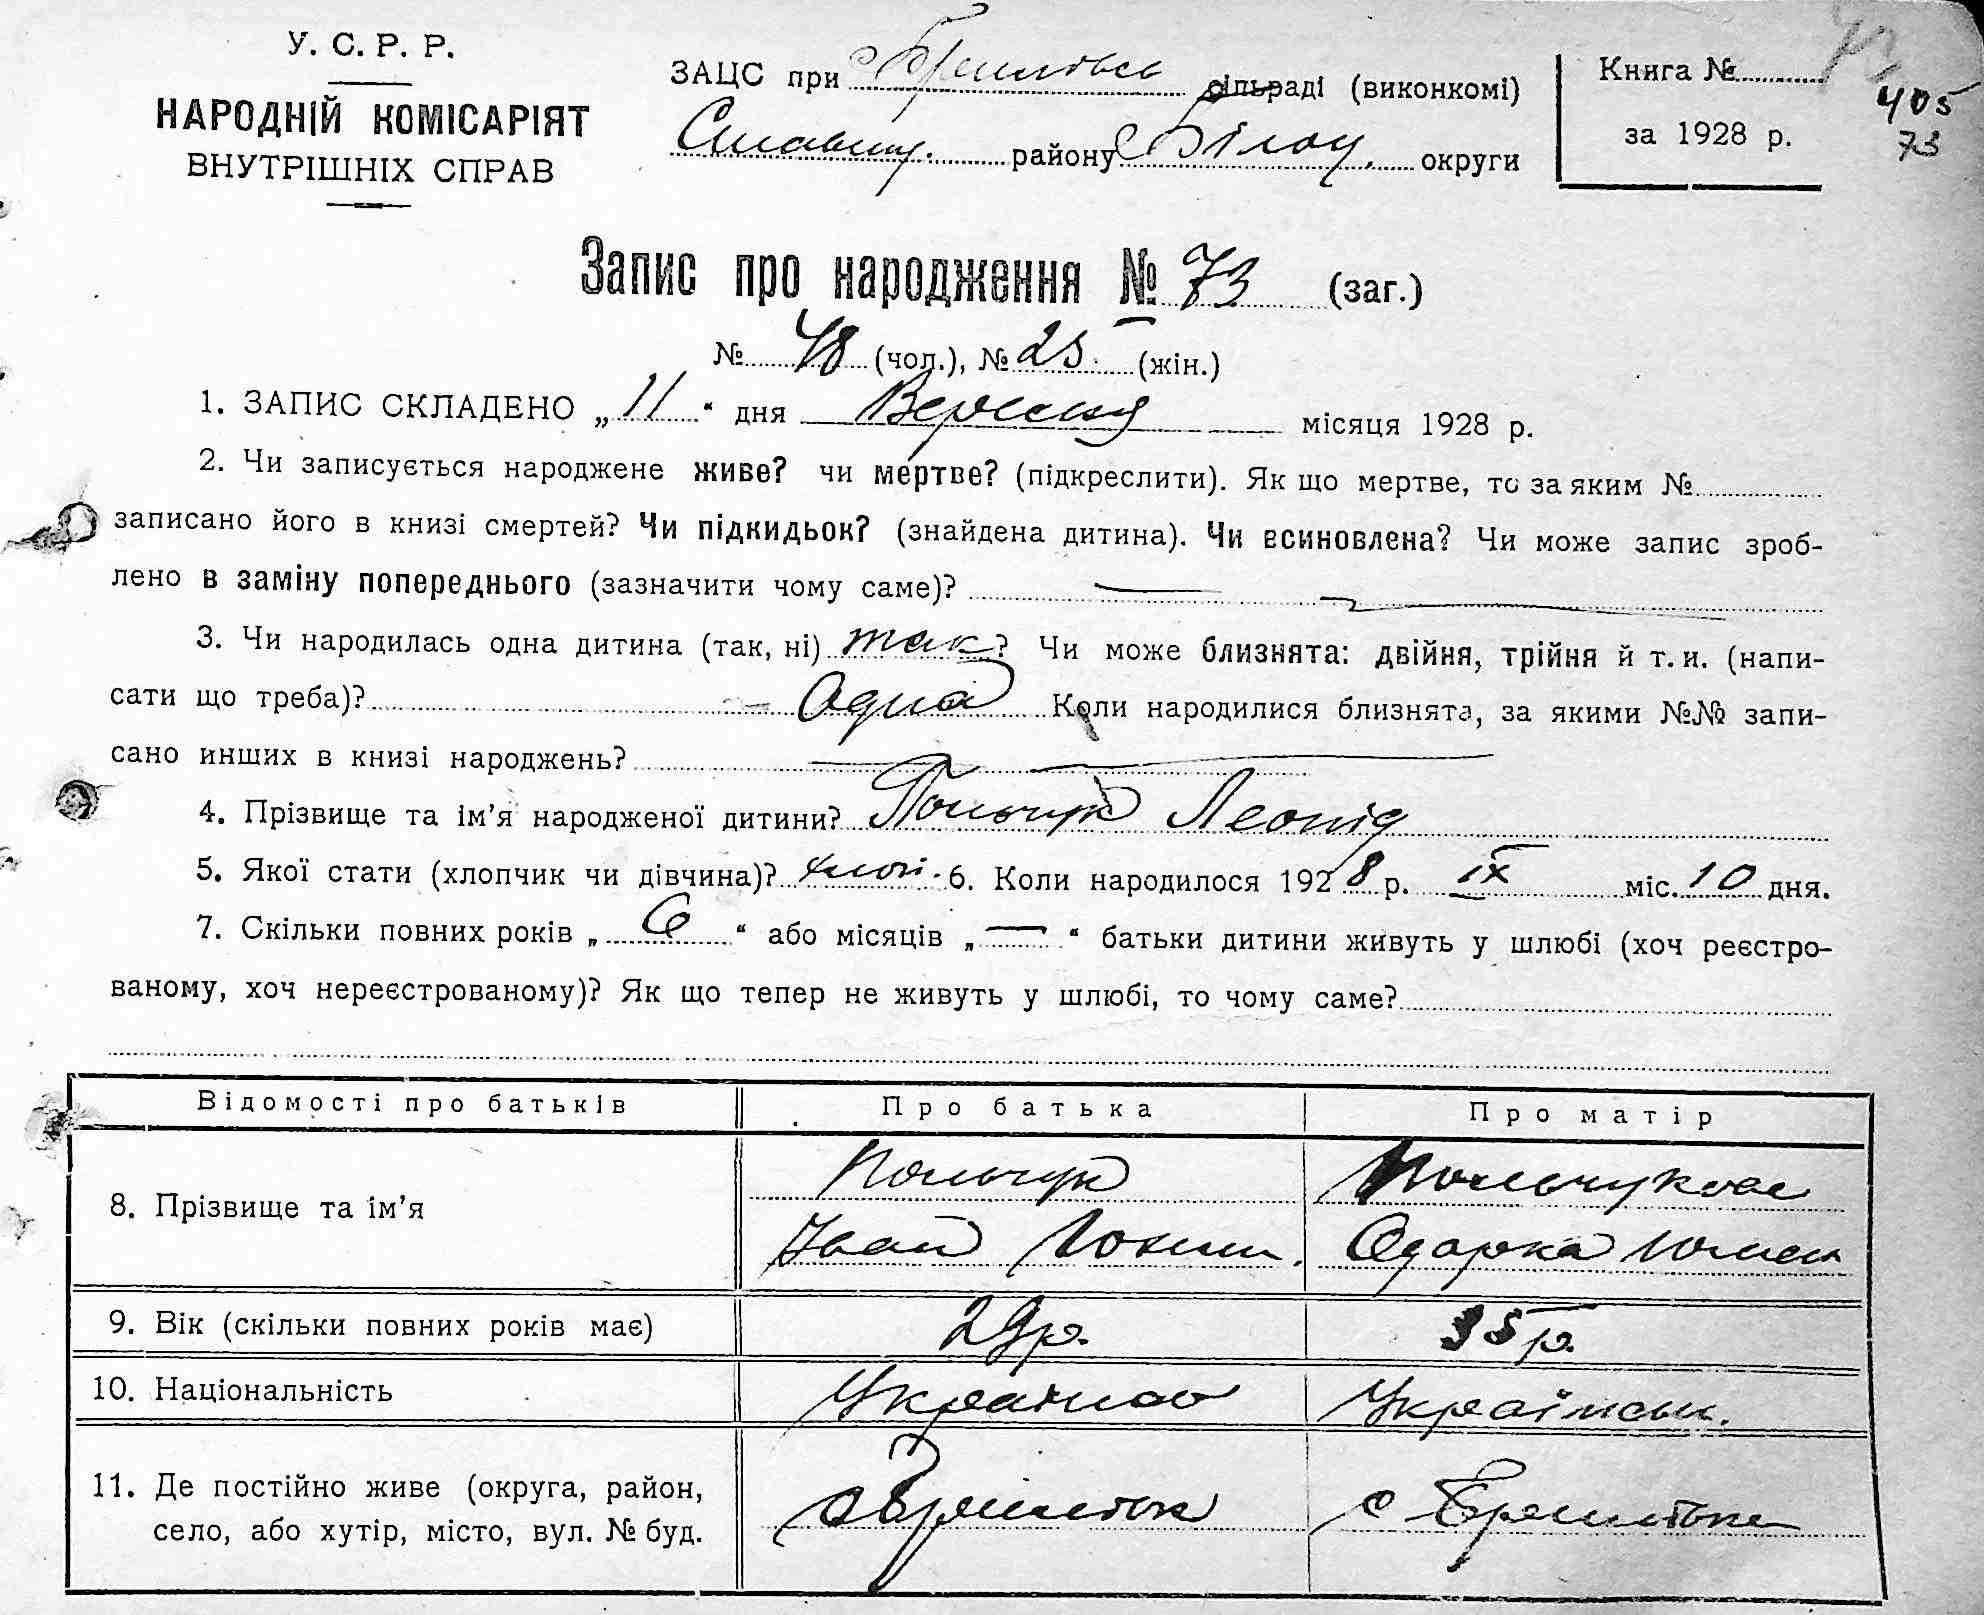 У. С. Р. Р.
НАРОДНІЙ КОМІСАРІЯТ
ВНУТРІШНІХ СПРАВ
ЗАЦС при сільраді (виконкомі)
району округи
Книга №
за 1928 р.
405
73
Запис про народження № 73 (заг.)
№ 48 (чол.), № 25 (жін.)
1. ЗАПИС СКЛАДЕНО „ 11 “ дня Вересня місяця 1928 р.
2. Чи записується народжене живе? чи мертве? (підкреслити). Як що мертве, то за яким №
записано його в книзі смертей? Чи підкидьок? (знайдена дитина). Чи всиновлена? Чи може запис зроб-
лено в заміну попереднього (зазначити чому саме)? —
3. Чи народилась одна дитина (так, ні) так? Чи може близнята: двійня, трійня й т. и. (напи-
сати що треба)? Одна Коли народилися близнята, за якими №№ запи-
сано инших в книзі народжень? —
4. Прізвище та ім'я народженої дитини? Польчук Леонід
5. Якої стати (хлопчик чи дівчина)? хлоп. 6. Коли народилося 1928 р. IX міс. 10 дня.
7. Скільки повних років „ 6 “ або місяців „ — “ батьки дитини живуть у шлюбі (хоч реєстро-
ваному, хоч нереєстрованому)? Як що тепер не живуть у шлюбі, то чому саме?
Відомості про батьків Про батька Про матір
8. Прізвище та ім'я Польчук Польчукова
Іван Одарка
9. Вік (скільки повних років має) 29 р. 35 р.
10. Національність Українськ.
11. Де постійно живе (округа, район,
село, або хутір, місто, вул. № буд.